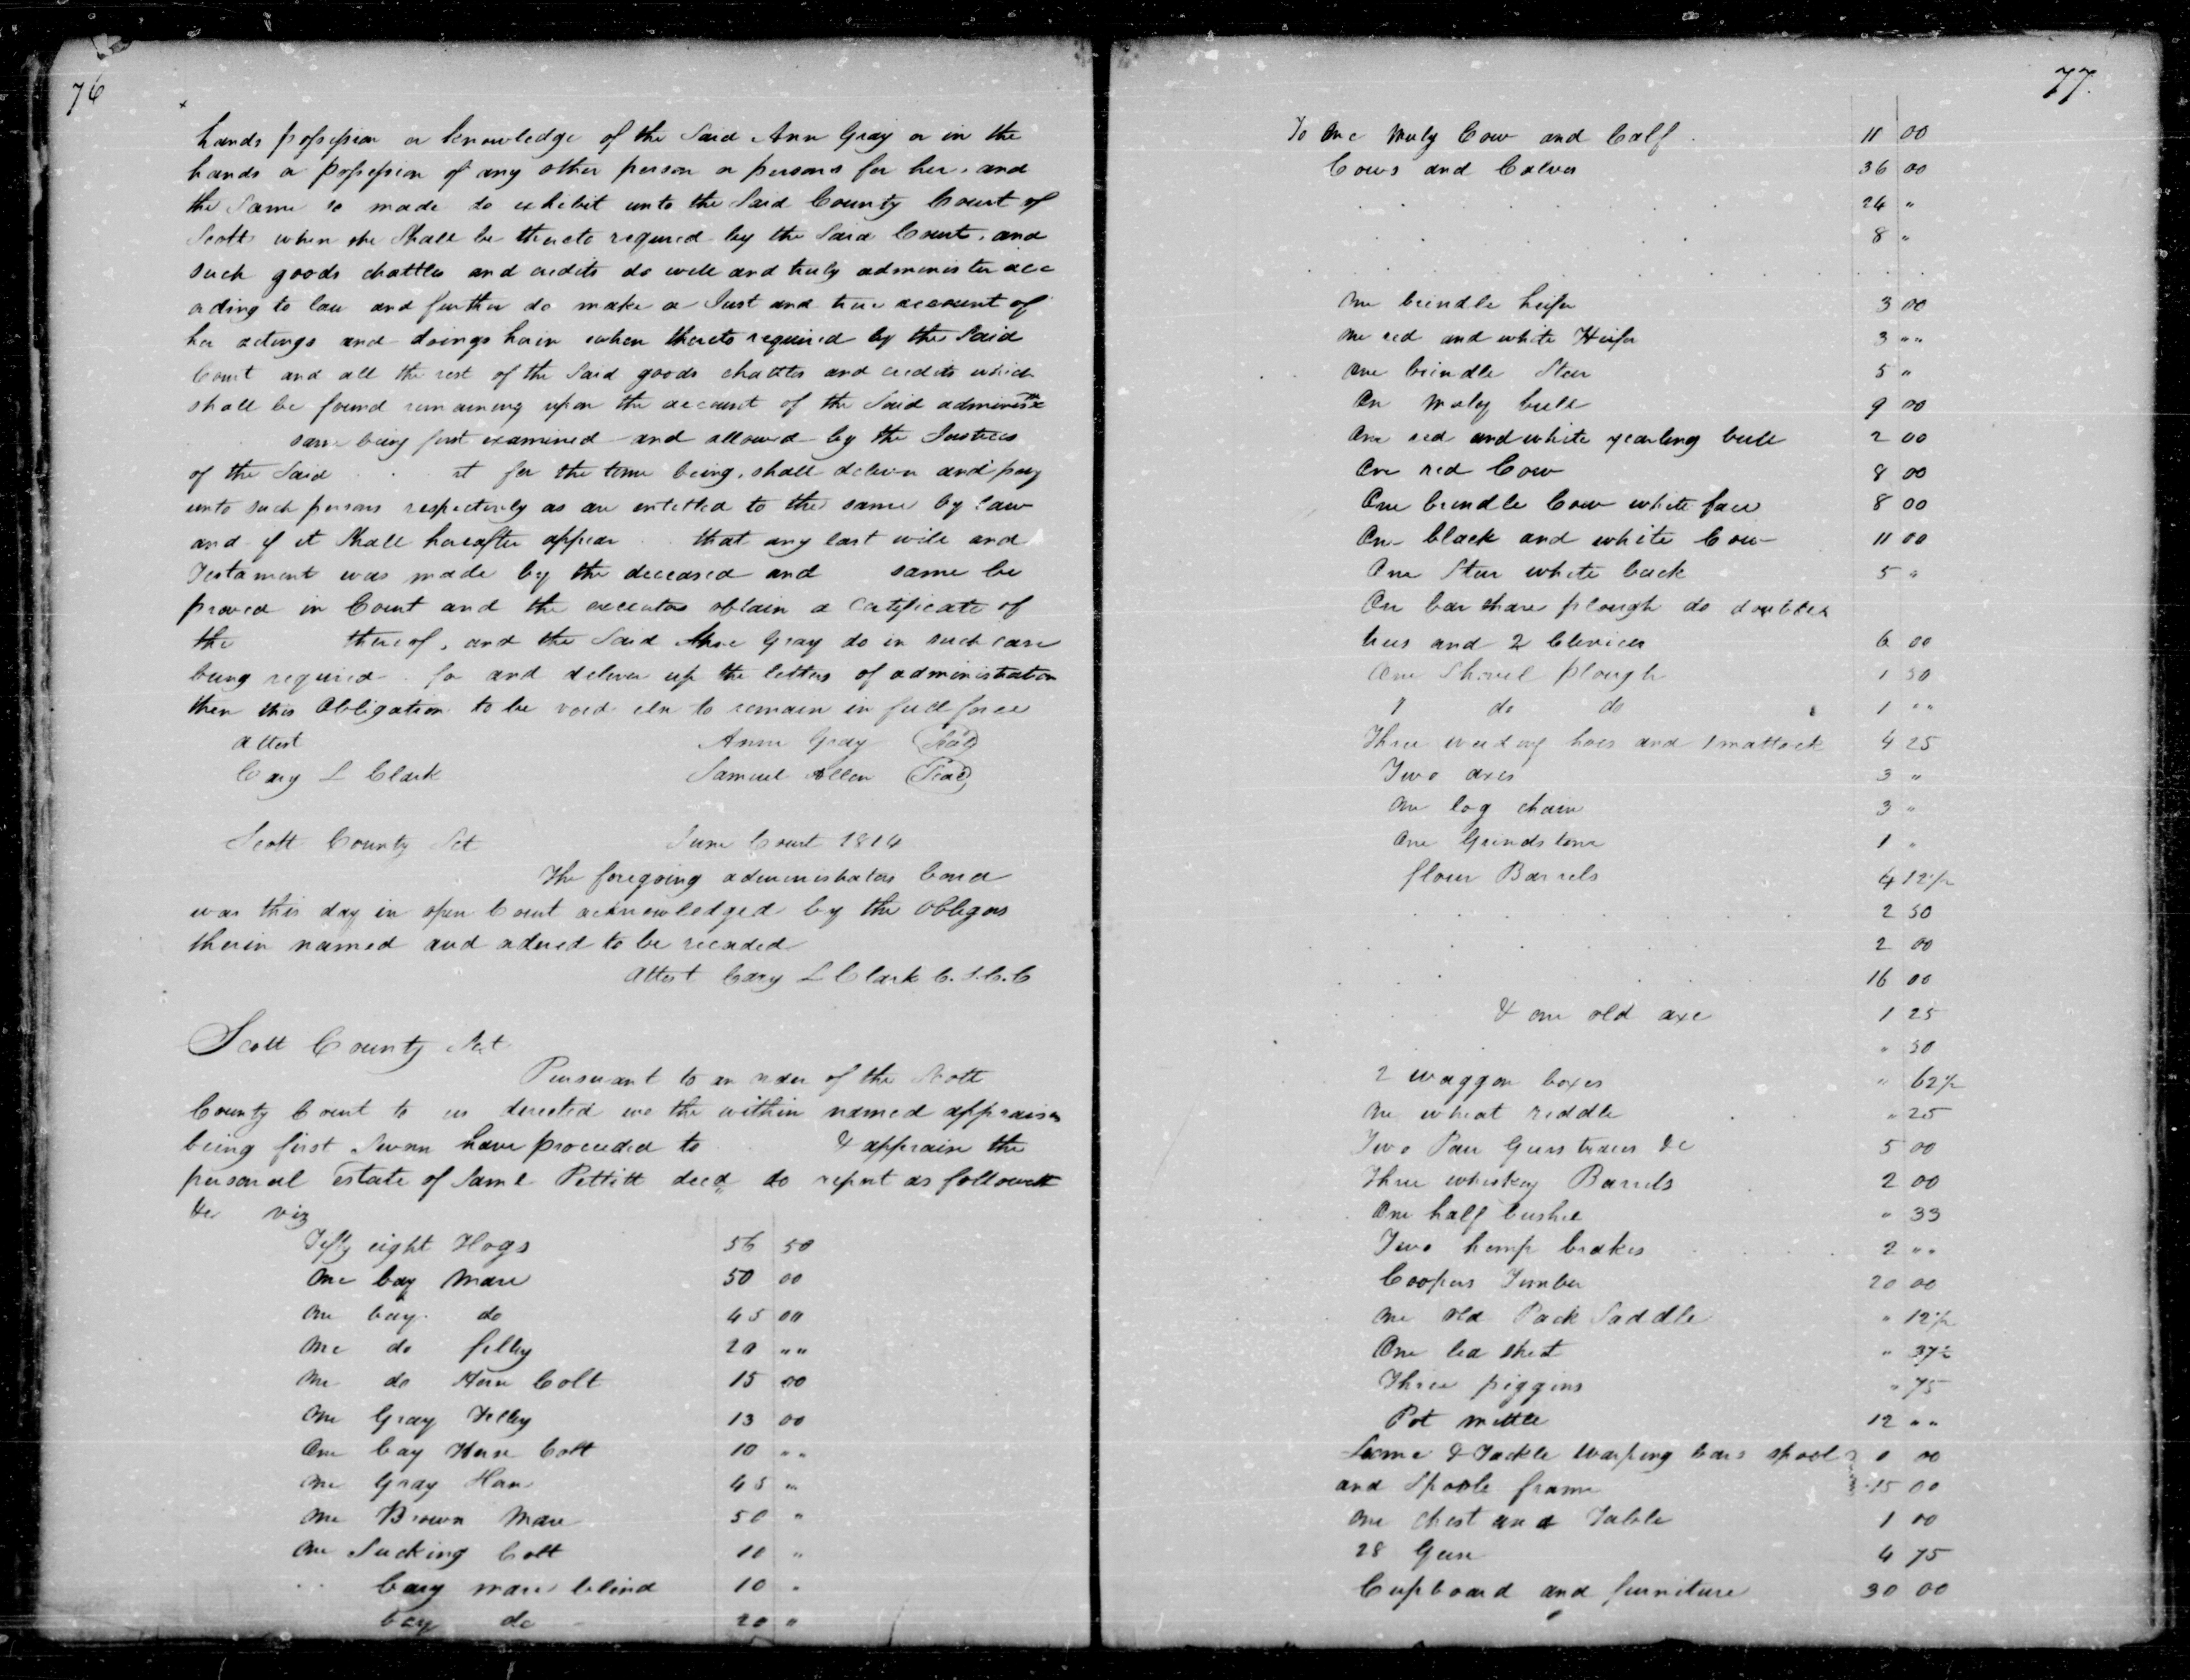 76
hands possession or knowledge of the Said Ann Gray or in the
hands or possession of any other person or persons for her, and
the Same so made do exhibit unto the Said County Court of
Scott when she Shall be thereto required by the Said Court, and
such goods chattles and credits do well and truly administer acc
ording to law and further do make a Just and true account of
her actings and doings herin when thereto required by the Said
Court and all the rest of the Said goods chattles and credits which
shall be found remaining upon the account of the Said
same being first examined and allowed by the Justices
of the Said rt for the time being, shall deliver and pay
unto such persons respectively as are entitled to the same by law
and if it Shall hereafter appear that any last will and
Testament was made by the deceased and same be
proved in Court and the executor obtain a Certificate of
the thereof, and the Said Gray do in such case
being required for and deliver up the letters of administration
then this Obligation to be void else to remain in full force
Attest Anne Gray (Seal)
Cary L Clark Samuel Allen (Seal)
Scott County Sct June Court 1814
The foregoing administrators bond
was this day in open Court acknowledged by the Obligors
therin named and ordered to be recorded
Attest Cary L Clark C.S.C.C
Scott County Sct
Pursuant to an order of the Scott
County Court to us directed we the within named appraisers
being first Sworn have proceeded to & appraise the
personal Estate of Saml Pettitt decd do report as followeth
viz
Fifty eight Hogs 56 50
One bay Mare 50 00
One bay do 45 00
One do filley 20 ""
One do Horse Colt 15 00
One Gray Filley 13 00
One bay Horse Colt 10 ""
One Gray 45 "
One Brown Mare 50 "
One Sucking Colt 10 "
bay mare blind 10 "
bay do 20 "
77
To One Muly Cow and Calf 11 00
Cows and Calves 36 00
24 "
8 "
One brindle heifer 3 00
One red and white Heifer 3 ""
One brindle Steer 5 "
On Muly bull 9 00
One red and white yearling bull 2 00
One red Cow 8 00
One brindle Cow white face 8 00
One black and white Cow 11 00
One Steer white back 5 "
One bar share plough do double
trees and 2 Clevices 6 00
One Shovel plough 1 50
1 do do 1 ""
Three weeding hoes and 1 mattock 4 25
Two axes 3 "
One log chain 3 "
One Grindstone 1 "
flour Barrels 4 12½
2 50
2 00
16 00
& one old axe 1 25
" 50
2 waggon boxes " 62½
One wheat riddle " 25
Two Pair Geers traces &c 5 00
Three whiskey Barrels 2 00
One half bushel " 33
Two hemp brakes 2 ""
Coopers Timber 20 00
One old Pack Saddle " 12½
One chest " 37½
Three piggins " 75
Pot mettle 12 ""
Loome & Tackle warping bars spool 0 00
and Spoole frame 15 00
One chest and Table 1 00
28 Geese 4 75
Cupboard and furniture 30 00